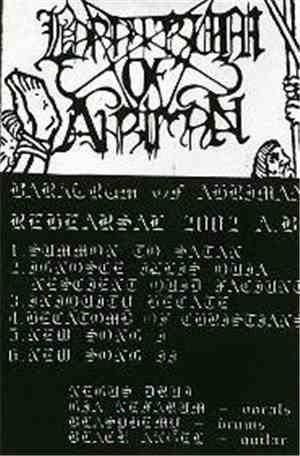 BARATRUM
OF
AHRIMAN
BARATRUM OF AHRIMAN
REHEARSAL 2002 A.B
1. SUMMON TO SATAN
2. IGNOSCE ILLIS QUIA
NESCIENT QUID FACIUNT
3. INIQUITU HECATE
4. HECATOMB OF CHRISTIANS
5. NEW SONG I
6. NEW SONG II
NEGUS DRUI
GIA NEFARUM - vocals
BLASPHEMY - drums
BLACK ANGEL - guitar